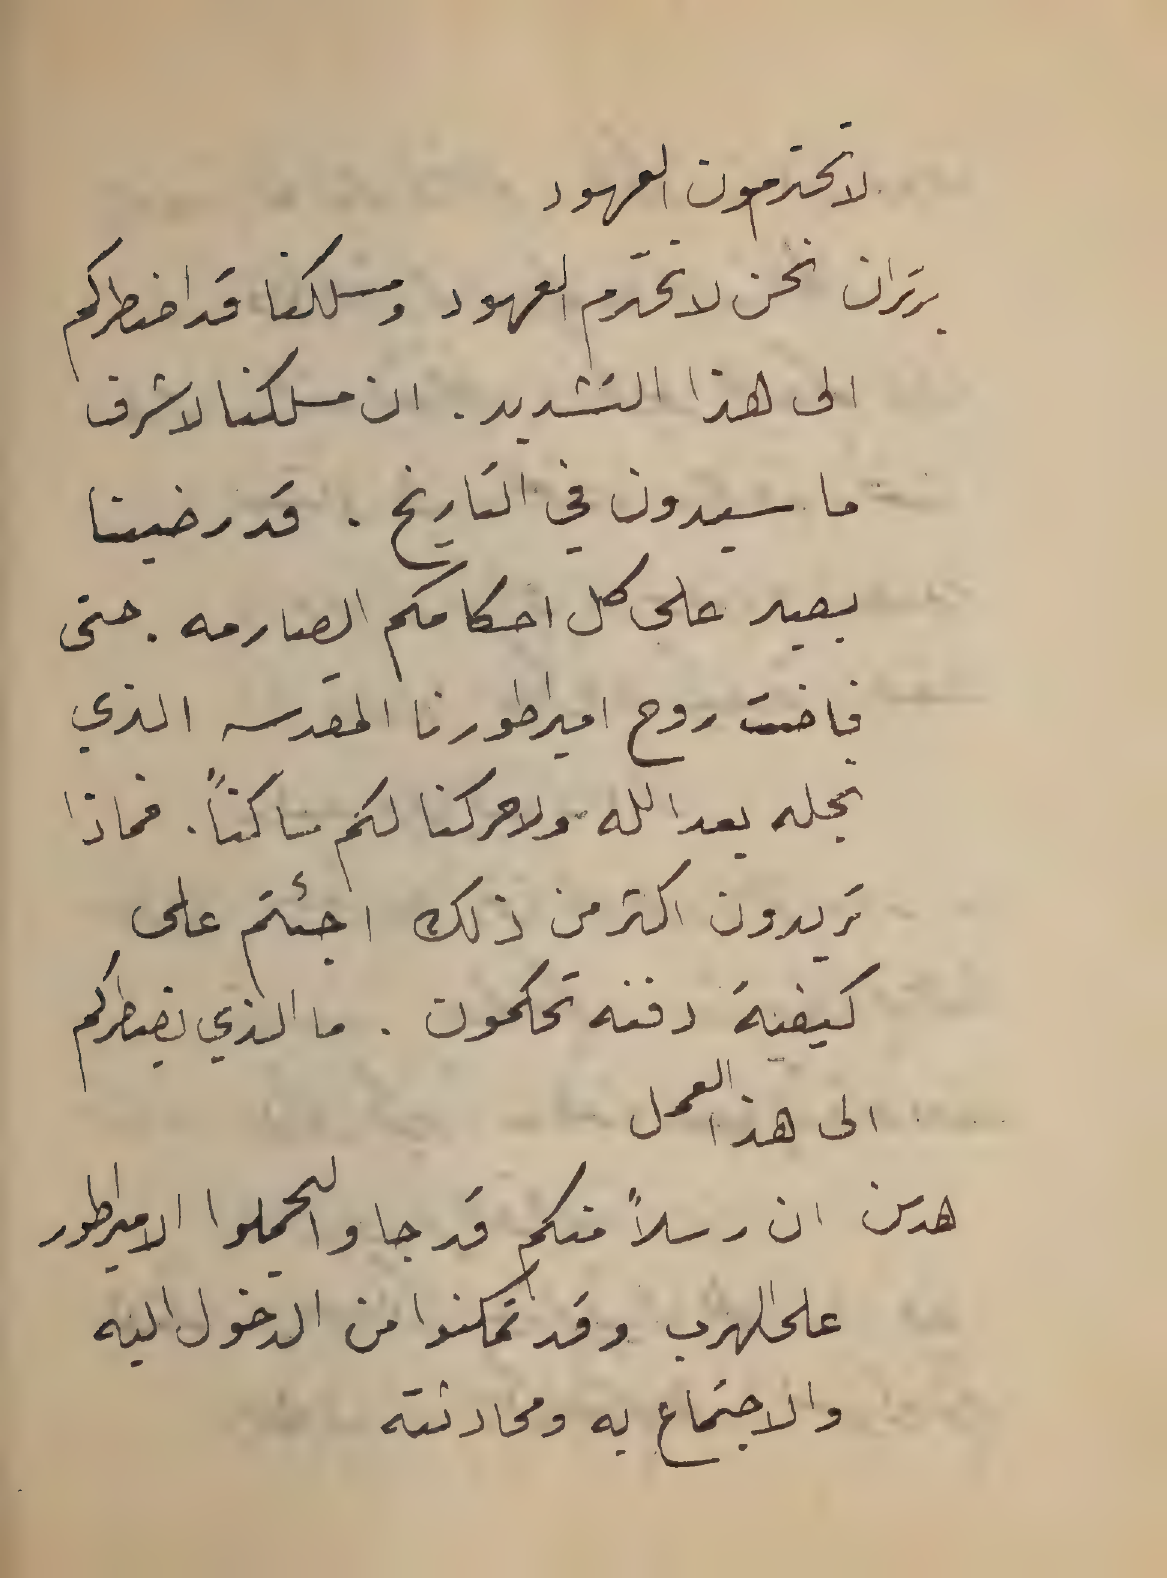 لا تحترمون العهود
برتران نحن لا نحترم العهود ومسلكنا قد اضطركم
الى هذا التشديد . ان مسلكنا لا شرف
ما سيدون في التاريخ . قد رضينا
بصبر على كل احكامكم الصارمه . حتى
فاضت روح امبراطورنا المقدسه الذي
نجله بعد الله ولا حركنا لكم ساكناً . فماذا
تريدون اكثر من ذلك اجئتم على
كيفية دفنه تحكمون . ما الذي يضطركم
الى هذا العمل
هدسن ان رسلاً منكم قد جاوا ليحملوا الامبراطور
على الهرب وقد تمكنوا من الدخول اليه
والاجتماع به ومحادثته